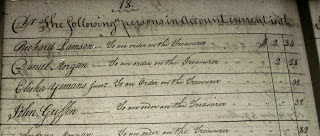 13
Dr The following persons in Account current with
Richard Lamson To an order on the Treasurer $ 2 34
Daniel Morgan To an order on the Treasurer 2 28
Elisha Yemans Junr. To an Order on the Treasurer 92
John Griffin To an order on the Treasurer 32
Morgan To an order on the Treasurer 82